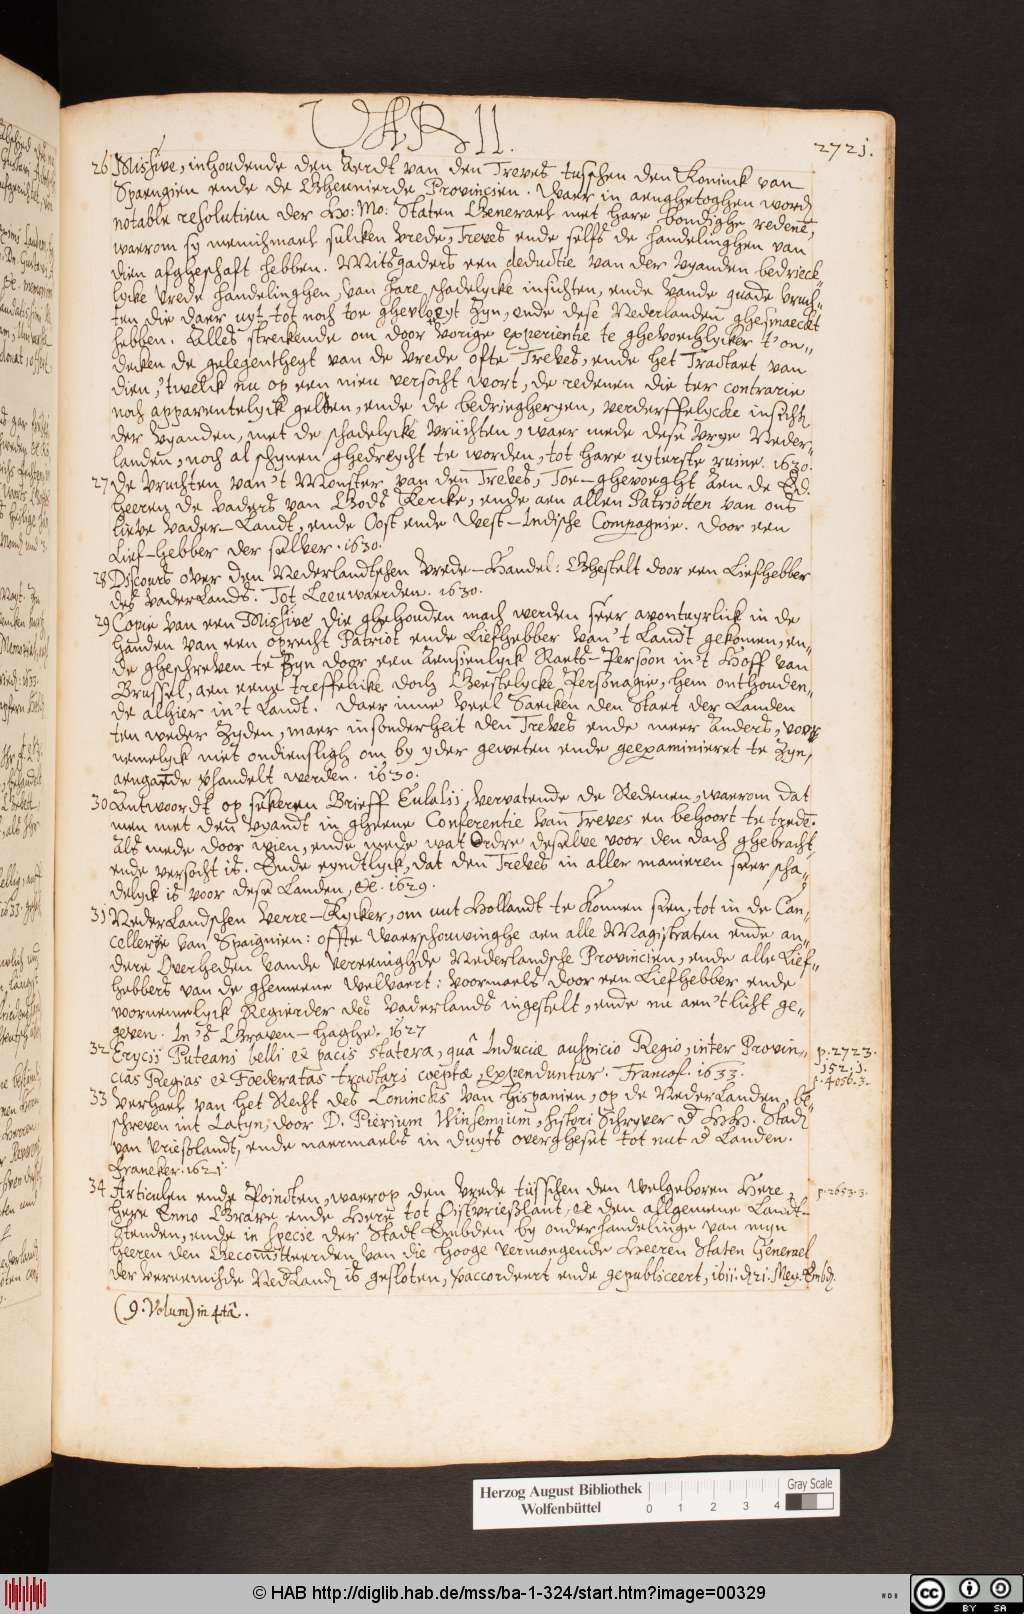 VARII.
2721.
26 Missive, inhoudende den Aerdt van den Treves tusschen den Konink van
Spaengien ende de Gheunieerde Provincien. Waer in aenghetoghen wordt
notable resolutien der Ho: Mo: Staten Generael met hare bondighe redenen,
waerom sy menichmael sulcken Vrede, Treves ende selfs de handelinghen van
dien afgheschaft hebben. Mitsgaders een deductie van der Vyanden bedrieck-
lycke Vrede handelinghen, van hare schadelycke insichten, ende vande quade vruch-
ten die daer uyt tot noch toe ghevloeyt zyn, ende dese Nederlanden ghesmaeckt
hebben. Alles streckende om door vorige experientie te ghevoechlycker t'on-
decken de gelegentheyt van de Vrede ofte Treves, ende het Tractaet van
dien, 'twelck nu op een nieu versocht wort, de redenen die ter contrarie
noch apparentelyck gelden, ende de bedrieghergen, verderffelycke insichte
der Vyanden, met de schadelycke vruchten, waer mede dese Vrye Neder-
landen, noch al schynen ghedreycht te worden, tot hare uyterste ruine. 1630.
27 De Vruchten van 't Monster van den Treves, Toe-ghevoeght Aen de Ed.
Heeren de Vaders van Gods Kercke, ende aen allen Patriotten van ons
lieve Vader-Landt, ende Oost ende West-Indische Compagnie. Door een
Lief-hebber der selver. 1630.
28 Discours over den Nederlandtschen Vrede-Handel: Ghestelt door een Liefhebber
des Vaderlands. Tot Leeuwaerden. 1630.
29 Copie van een Missive die ghehouden mach werden seer avontuyrlick in de
handen van een oprecht Patriot ende Liefhebber van 't Landt gekomen, en-
de gheschreven te zyn door een Aensienlyck Raets-Persoon in 't Hoff van
Brussel, aen eene treffelicke doch Geestelycke Personagie, hem onthouden-
de alhier in 't Landt. Daer inne veel Saecken den Staet der Landen
ten weder zyden, maer insonderheit den Treves ende meer anders, voor
nemelyck niet ondienstligh om by yder geweten ende geexamineert te zyn,
aengaende verhandelt werden. 1630.
30 Antwoordt op sekeren Brieff Eulalii, vervatende de Redenen, waerom dat
men met den Vyandt in gheene Conferentie van Treves en behoort te treden.
Als mede door wien, ende mede wat Ordre deselve voor den dach ghebracht,
ende versocht is. Ende eyndtlyck, dat den Treves in aller manieren seer scha-
delyck is voor dese Landen, &c. 1629.
31 Nederlandschen Verre-Kycker, om uut Hollandt te konnen sien, tot in de Can-
cellerije van Spaignien: offte Waerschouwinghe aen alle Magistraten ende an-
dere Overheden vande Vereenighde Nederlandsche Provincien, ende alle Lief-
hebbers van de ghemeene Welvaert: voormaels door een Liefhebber ende
voornemelyck Regierder des Vaderlands ingestelt, ende nu aen 't licht ge-
geven. In 's Graven-Haghe. 1627
32 Erycii Puteani belli et pacis statera, quâ Induciæ auspicio Regio, inter Provin-
cias Regias et Foederatas tractari coeptæ, expenduntur. Francof. 1633.
p. 2723.
152. j.
p. 4056. 3.
33 Verhael van het Recht des Conincks van Hispanien, op de Nederlanden, be-
schreven int Latyn, door D. Pierium Winsemium, histori Schryver d' HH. Stadt
van Vrieslandt, ende naermaels in duyts overgheset tot nut d' Landen.
Franeker. 1621.
34 Articulen ende Poincten, waerop den Vrede tüsschen den Welgeboren Here,
Here Enno Grave ende Here tot Oistvrieslant, &c den allgemene Landt-
stenden, ende in specie der Stadt Embden by onderhandelinge van myn
Heeren den Gecommitteerden van die Hooge Vermoegende Heeren Staten Generael
der vereenichde Nederlanden is gesloten, veraccordeert ende gepubliceert, 1611. d. 21. May. Embd.
p. 2653. 3.
(9. Volum) in 4tâ.
Herzog August Bibliothek
Wolfenbüttel
0 1 2 3 4
Gray Scale
© HAB http://diglib.hab.de/mss/ba-1-324/start.htm?image=00329
cc BY SA